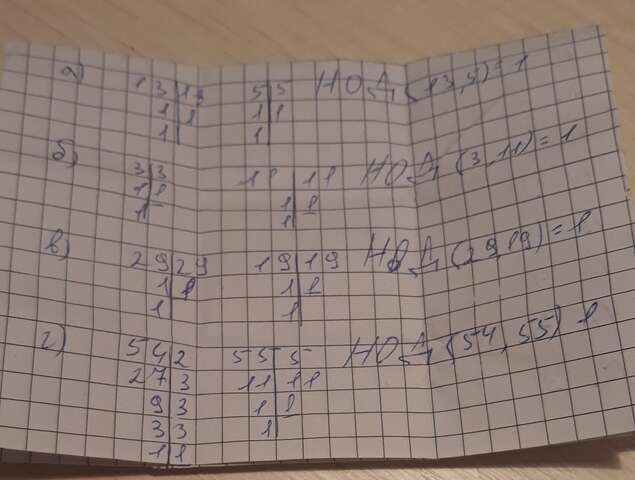 а) 13 | 13 5 | 5 НОД (13,5) = 1
1 | 1 1 | 1
1 | 1 |
б) 3 | 3 11 | 11 НОД (3,11) = 1
1 | 1 1 | 1
1 | 1 |
в) 29 | 29 19 | 19 НОД (29 19) = 1
1 | 1 1 | 1
1 | 1 |
г) 54 | 2 55 | 5 НОД (54, 55) 1
27 | 3 11 | 11
9 | 3 1 | 1
3 | 3 1 |
1 | 1